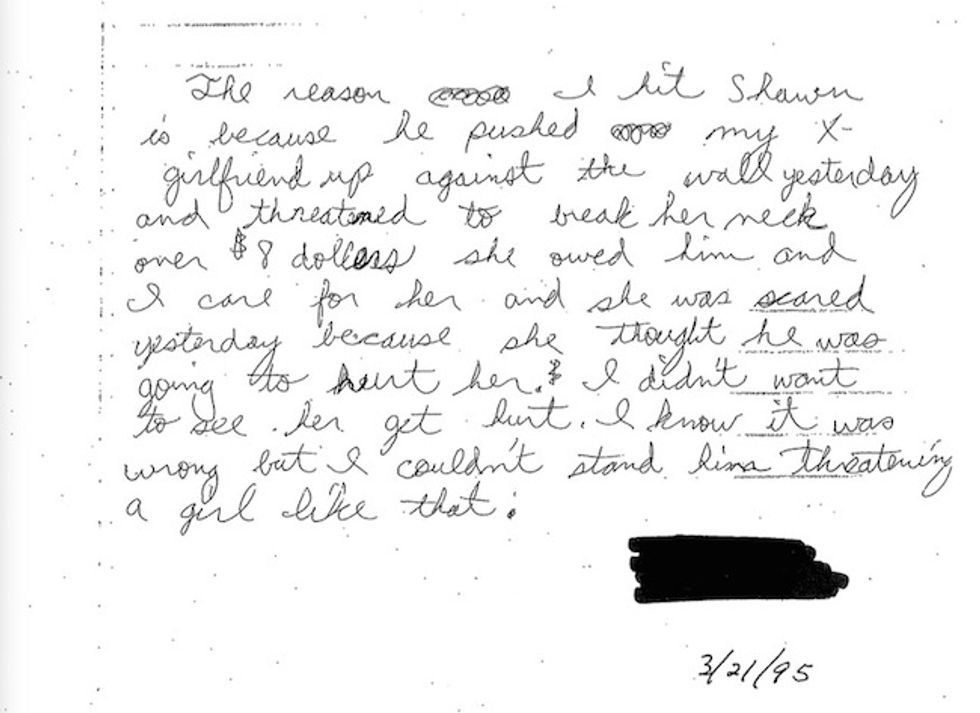 The reason I hit Shawn
is because he pushed my X-
girlfriend up against the wall yesterday
and threatened to break her neck
over $8 dollars she owed him and
I care for her and she was scared
yesterday because she thought he was
going to hurt her. & I didn't want
to see her get hurt. I know it was
wrong but I couldn't stand him threatening
a girl like that.
3/21/95